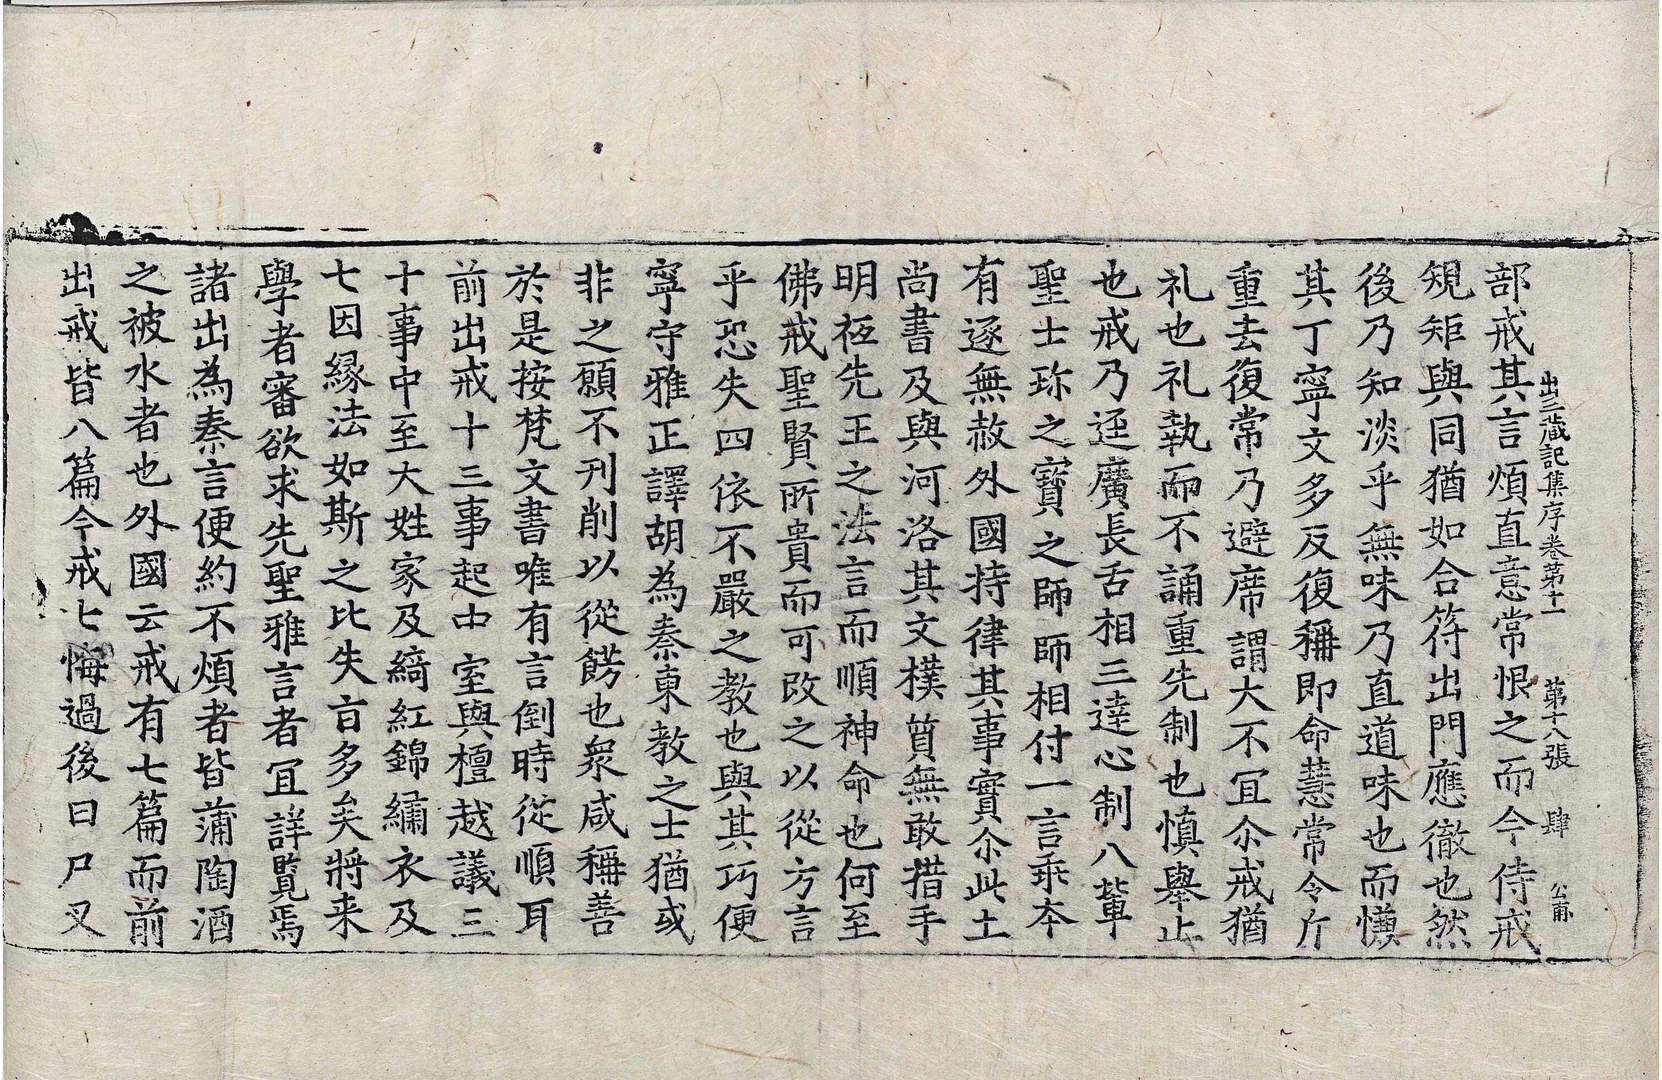 出三藏記集序卷第十一　第十八張　肆　公甫
部戒其言煩直意常恨之而今侍戒
規矩與同猶如合符出門應徹也然
後乃知淡乎無味乃直道味也而慊
其丁寧文多反復稱即命慧常令斤
重去復常乃避席謂大不冝尒戒猶
礼也礼執而不誦重先制也慎舉止
也戒乃逕廣長舌相三達心制八輩
聖士珎之寶之師師相付一言乖夲
有逐無赦外國持律其事實尒此土
尚書及與河洛其文樸質無敢措手
明祇先王之法言而順神命也何至
佛戒聖賢所貴而可改之以從方言
乎恐失四依不嚴之教也與其巧便
寧守雅正譯胡為秦東教之士猶或
非之願不刊削以從飾也衆咸稱善
於是按梵文書唯有言倒時從順耳
前出戒十三事起中室與檀越議三
十事中至大姓家及綺紅錦繡衣及
七因緣法如斯之比失旨多矣將来
學者審欲求先聖雅言者冝詳覽焉
諸出為秦言便約不煩者皆蒲陶酒
之被水者也外國云戒有七篇而前
出戒皆八篇今戒七悔過後曰尸叉